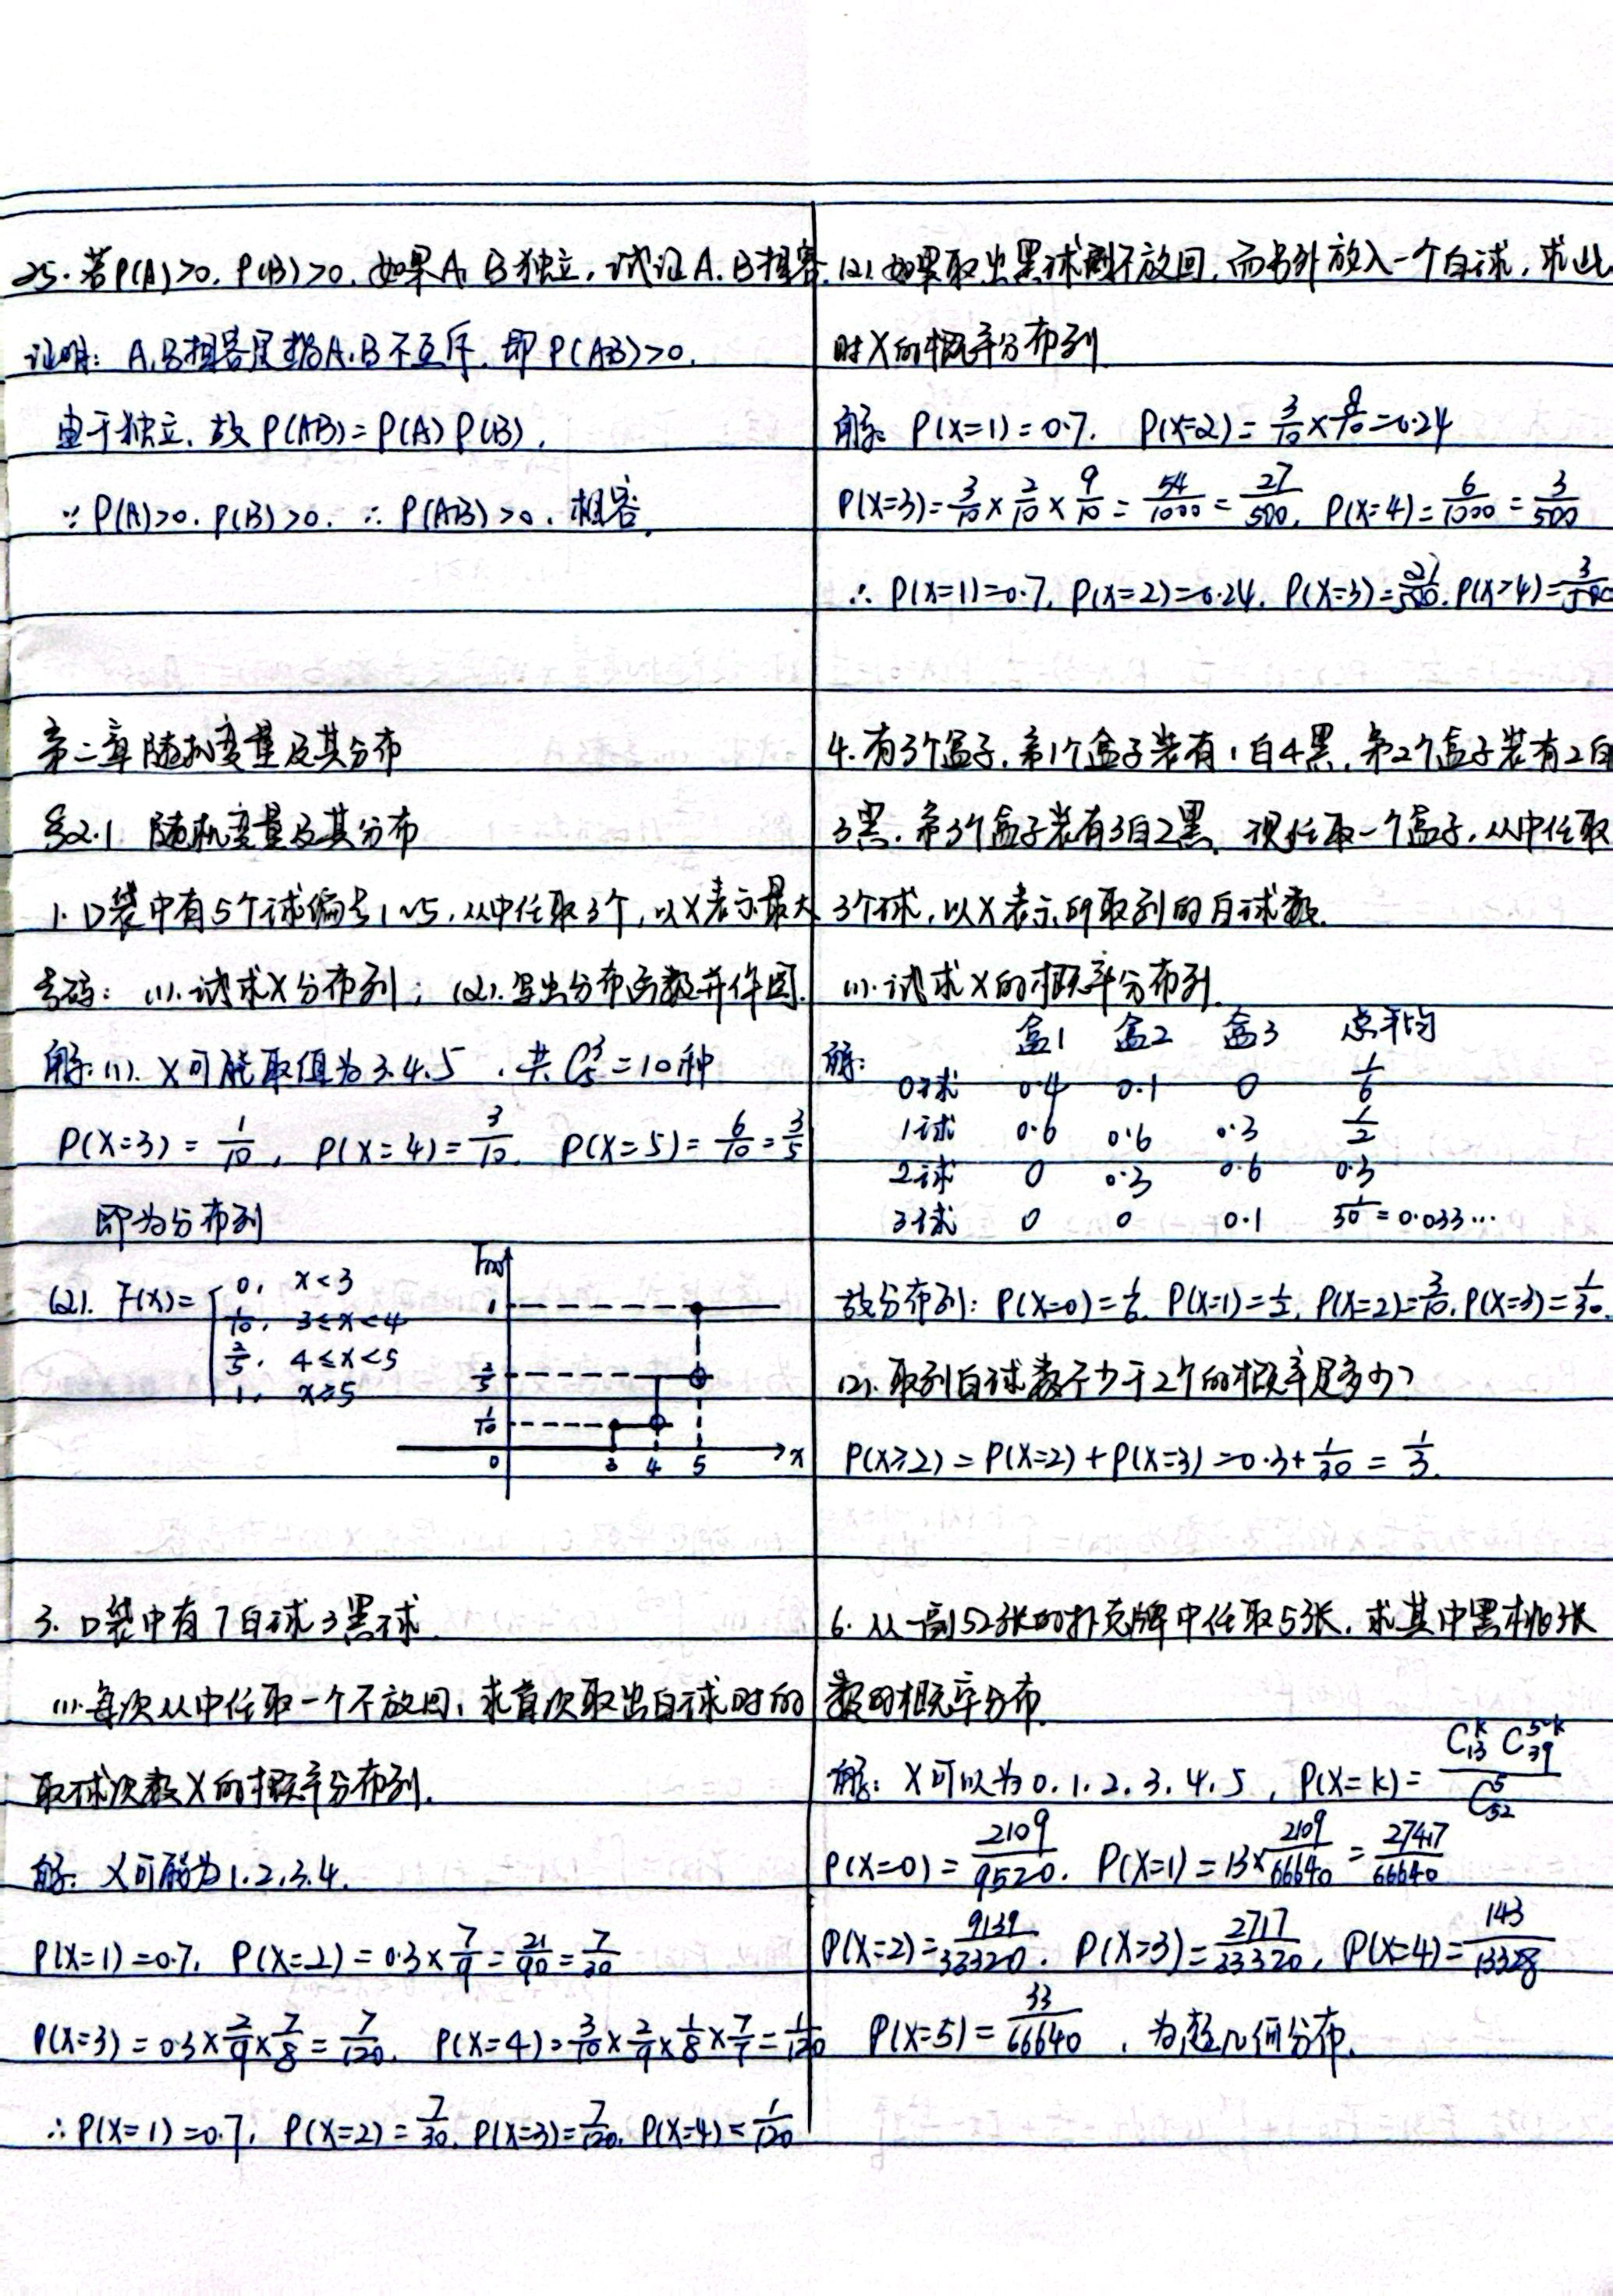 25. 若P(A)>0, P(B)>0, 如果A、B独立, 试证A、B相容.
证明: A、B相容是指A、B不互斥, 即 P(AB)>0.
由于独立, 故 P(AB)=P(A)P(B),
∵ P(A)>0, P(B)>0, ∴ P(AB)>0, 相容.
第二章 随机变量及其分布
§2.1 随机变量及其分布
1. 口袋中有5个球编号1~5, 从中任取3个, 以X表示最大
号码: (1). 试求X分布列; (2). 写出分布函数并作图.
解: (1). X可能取值为3.4.5 , 共 C₅³=10种
P(X=3) = 1/10, P(X=4) = 3/10, P(X=5) = 6/10 = 3/5
即为分布列
(2). F(x)= { 0, x<3
1/10, 3≤x<4
2/5, 4≤x<5
1, x≥5
F(x)
1
2/5
1/10
0 3 4 5 x
3. 口袋中有7白球3黑球.
(1). 每次从中任取一个不放回, 求首次取出白球时的
取球次数X的概率分布列.
解: X可能为1.2.3.4.
P(X=1)=0.7, P(X=2)=0.3×7/9=21/90=7/30
P(X=3)=0.3×2/9×7/8=7/120, P(X=4)=3/10×2/9×1/8×7/7=1/120
∴P(X=1)=0.7, P(X=2)=7/30, P(X=3)=7/120, P(X=4)=1/120
(2) 如果取出黑球不放回, 而另外放入一个白球, 求此
时X的概率分布列.
解: P(X=1)=0.7, P(X=2)=3/10×8/10=0.24
P(X=3)=3/10×2/10×9/10=54/1000=27/500, P(X=4)=6/1000=3/500
∴ P(X=1)=0.7, P(X=2)=0.24, P(X=3)=27/500, P(X=4)=3/500
4. 有3个盒子, 第1个盒子装有1白4黑, 第2个盒子装有2白
3黑, 第3个盒子装有3白2黑. 现任取一个盒子, 从中任取
3个球, 以X表示所取到的白球数.
(1). 试求X的概率分布列.
解: 盒1 盒2 盒3 总平均
0球 0.4 0.1 0 1/6
1球 0.6 0.6 0.3 1/2
2球 0 0.3 0.6 0.3
3球 0 0 0.1 1/30=0.033…
故分布列: P(X=0)=1/6, P(X=1)=1/2, P(X=2)=3/10, P(X=3)=1/30.
(2). 取到白球数不少于2个的概率是多少?
P(X≥2)=P(X=2)+P(X=3)=0.3+1/30=1/3.
6. 从一副52张的扑克牌中任取5张, 求其中黑桃张
数的概率分布.
解: X可以为0.1.2.3.4.5 , P(X=k)= C₁₃ᵏ C₃₉⁵⁻ᵏ / C₅₂⁵
P(X=0)=2109/9520, P(X=1)=13×2109/66640=27417/66640
P(X=2)=9139/33320, P(X=3)=2717/33320, P(X=4)=143/13328
P(X=5)=33/66640 , 为超几何分布.